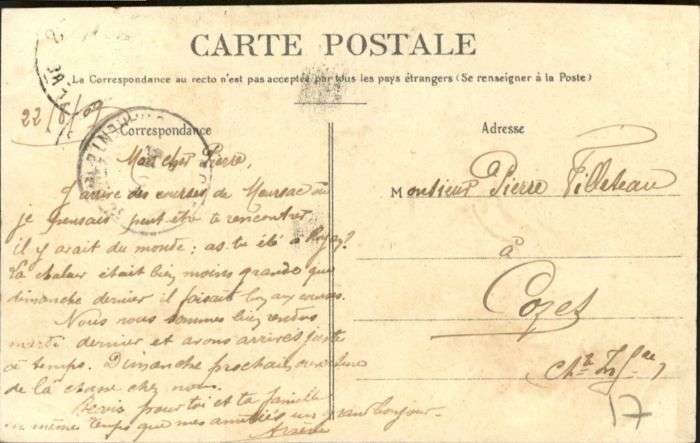 CARTE POSTALE
La Correspondance au recto n'est pas acceptée par tous les pays étrangers (Se renseigner à la Poste)
22/8/09
Correspondance
Mon cher Pierre,
J'arrive des courses de où
je pensais peut être te rencontrer
il y avait du monde : as tu été à Royan?
La chaleur était bien moins grande que
dimanche dernier il faisait bon aux courses.
Nous nous sommes bien rendus
mardi dernier et avons arrivés juste
à temps. Dimanche prochain ouverture
de la chasse chez nous.
pour toi et ta famille
en même temps que mes amitiés un grand bonjour
Adresse
Monsieur Pierre Villeteau
à
Cozes
Chte Infre
17